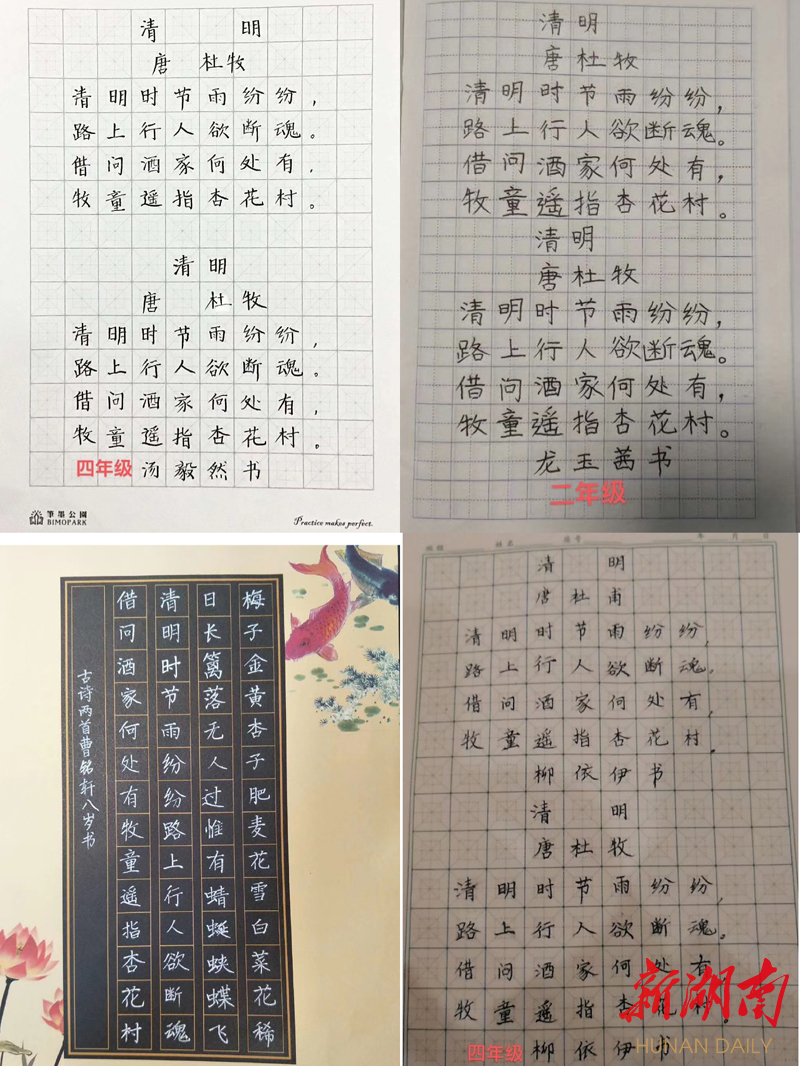 清明
唐 杜牧
清明时节雨纷纷，
路上行人欲断魂。
借问酒家何处有，
牧童遥指杏花村。
清明
唐 杜牧
清明时节雨纷纷，
路上行人欲断魂。
借问酒家何处有，
牧童遥指杏花村。
四年级 汤毅然书
筆墨公園
BIMOPARK
Practice makes perfect.
清明
唐杜牧
清明时节雨纷纷，
路上行人欲断魂。
借问酒家何处有，
牧童遥指杏花村。
清明
唐杜牧
清明时节雨纷纷，
路上行人欲断魂。
借问酒家何处有，
牧童遥指杏花村。
龙玉茜书
二年级
梅子金黄杏子肥麦花雪白菜花稀
日长篱落无人过惟有蜻蜓蛱蝶飞
清明时节雨纷纷路上行人欲断魂
借问酒家何处有牧童遥指杏花村
古诗两首曹铭轩八岁书
姓名 年 月 日
清明
唐杜甫
清明时节雨纷纷，
路上行人欲断魂。
借问酒家何处有，
牧童遥指杏花村。
柳依伊书
清明
唐杜牧
清明时节雨纷纷，
路上行人欲断魂。
借问酒家何处有
牧童遥指杏花村。
四年级 柳依伊书
新湖南
HUNAN DAILY